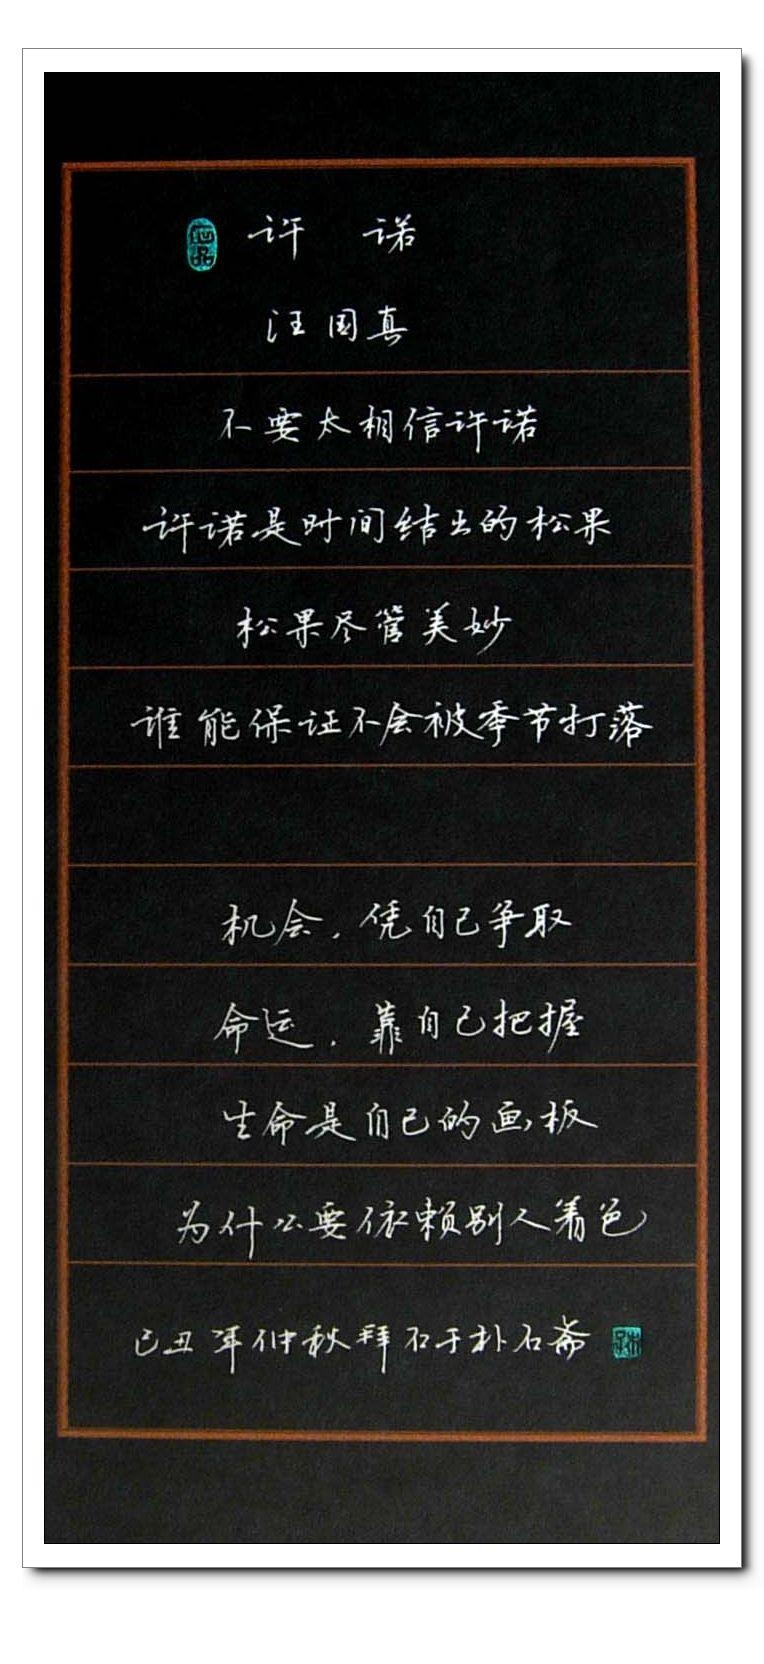 许 诺
汪国真
不要太相信许诺
许诺是时间结出的松果
松果尽管美妙
谁能保证不会被季节打落
机会，凭自己争取
命运，靠自己把握
生命是自己的画板
为什么要依赖别人着色
己丑年仲秋拜石于朴石斋